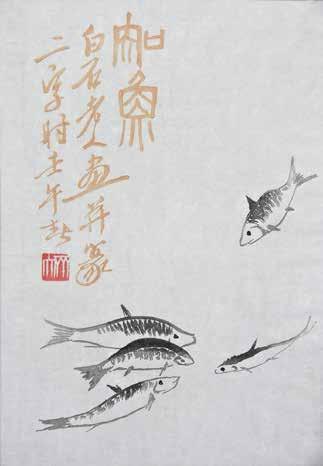 知魚
白石老人畫并篆
二字時壬午